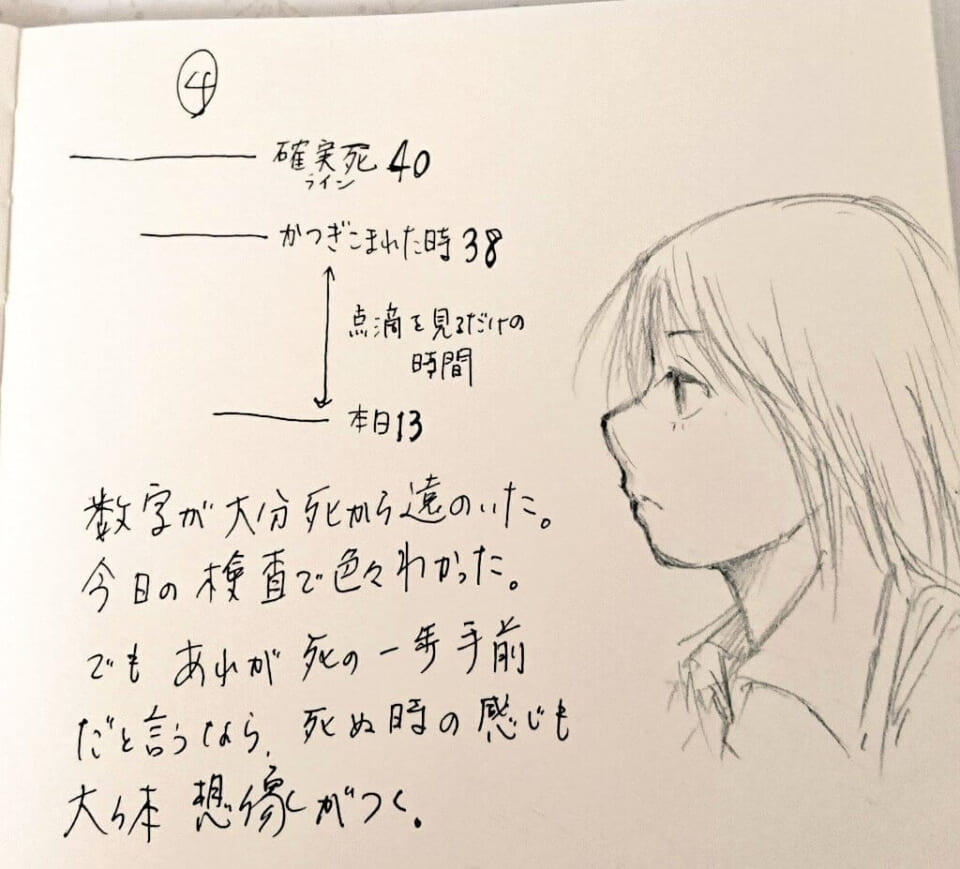 ④
確実死 40
ライン
かつぎこまれた時 38
点滴を見るだけの
時間
本日 13
数字が大分死から遠のいた。
今日の検査で色々わかった。
でもあれが死の一歩手前
だと言うなら、死ぬ時の感じも
大体想像がつく。